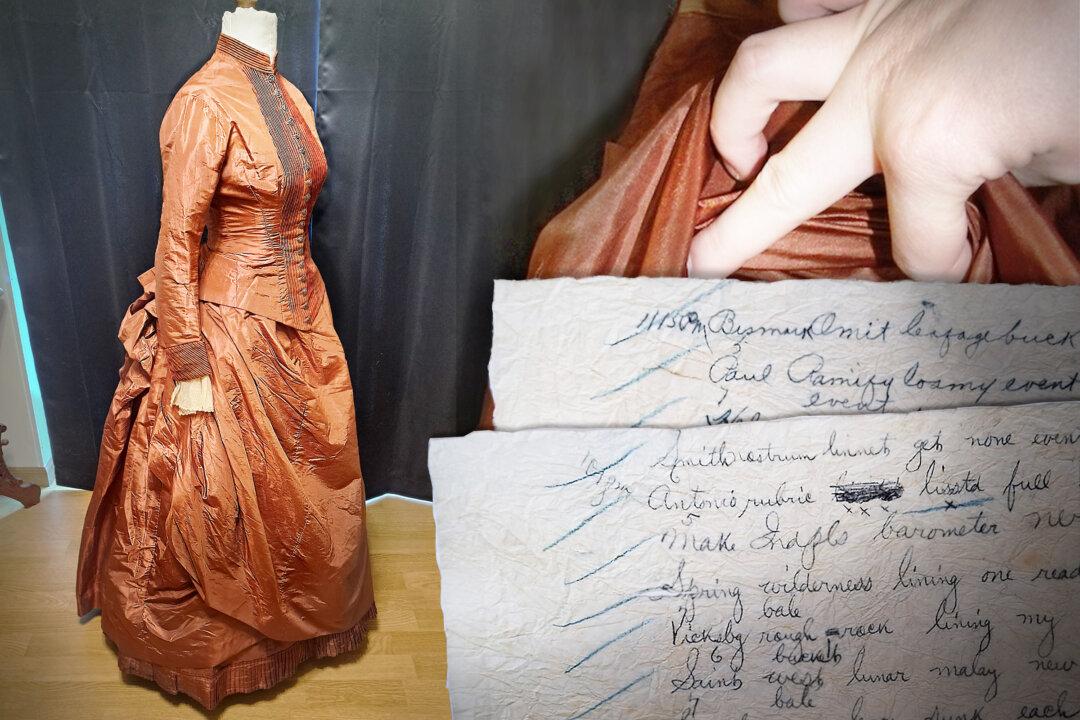 1150Pm Bismark Omit leafage buck
Paul Ramify loamy event
event
Smith nostrum linnet get none even
Antonio rubric lissta full
5
Make Indpls barometer ner
Spring wilderness lining one read
7 bale
Vicksbg rough-rack lining my
6 bucket
Saint west lunar malay new
7 bale
each